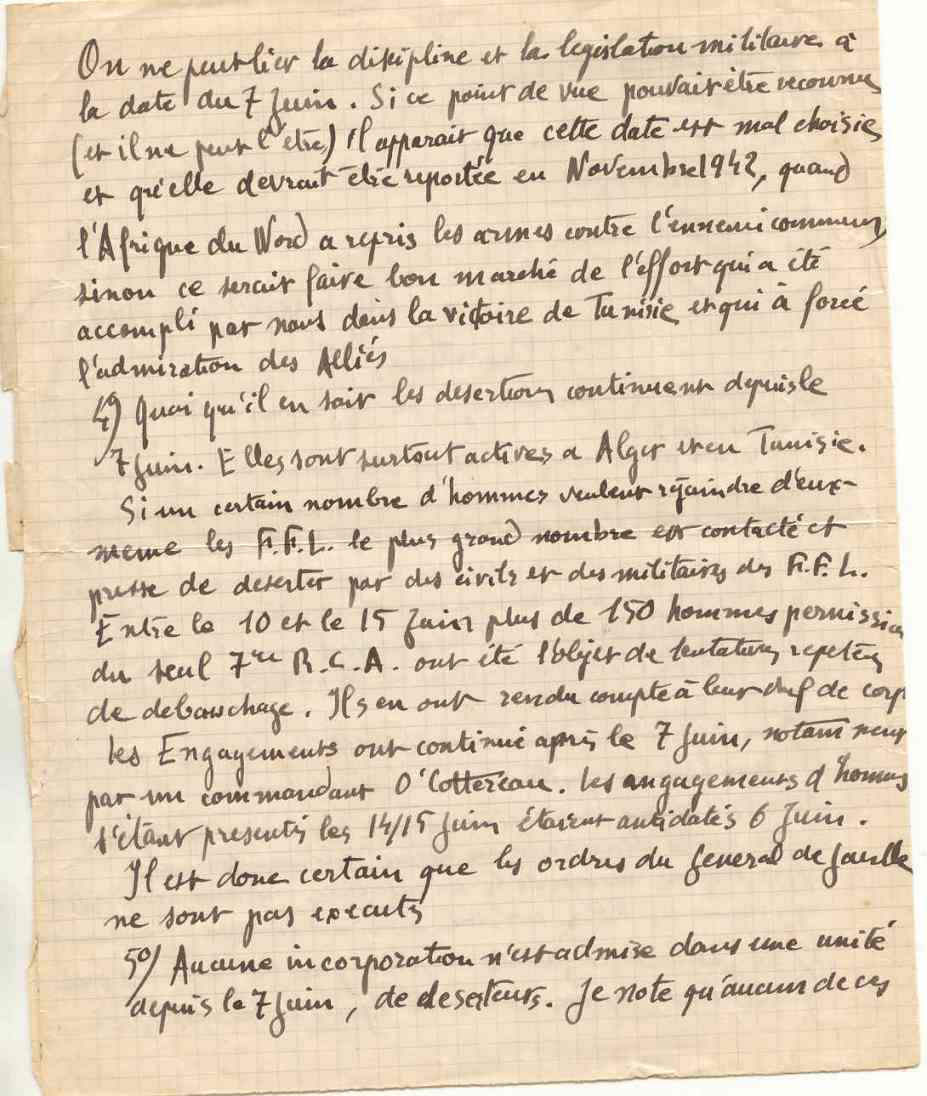 On ne peut lier la disipline et la legislation militaire à
la date du 7 Juin. Si ce point de vue pouvait être reconnu
(et il ne peut l'être) Il apparait que cette date est mal choisie
et qu'elle devrait être reportée en Novembre 1942, quand
l'Afrique du Nord a repris les armes contre l'ennemi commun,
sinon ce serait faire bon marché de l'effort qui a été
accompli par nous dans la victoire de Tunisie et qui à forcé
l'admiration des Alliés
4°) Quoi qu'il en soit les desertions continuent depuis le
7 Juin. Elles sont surtout actives a Alger et en Tunisie.
Si un certain nombre d'hommes veulent rejoindre d'eux-
meme les F.F.L. le plus grand nombre est contacté et
presse de deserter par des civils et des militaires des F.F.L.
Entre le 10 et le 15 Juin plus de 150 hommes permission
du seul 7me R.C.A. ont été l'objet de tentatives repetées
de debauchage. Ils en ont rendu compte à leur chef de corp
les Engagements ont continué après le 7 Juin, notamment
par un commandant O'Cottereau. les angagements d'hommes
s'étant presentés les 14/15 Juin étaient antidatés 6 Juin.
Il est donc certain que les ordres du General de Gaulle
ne sont pas executés
5°/ Aucune incorporation n'est admise dans une unité
depuis le 7 Juin, de deserteurs. Je note qu'aucun de ces